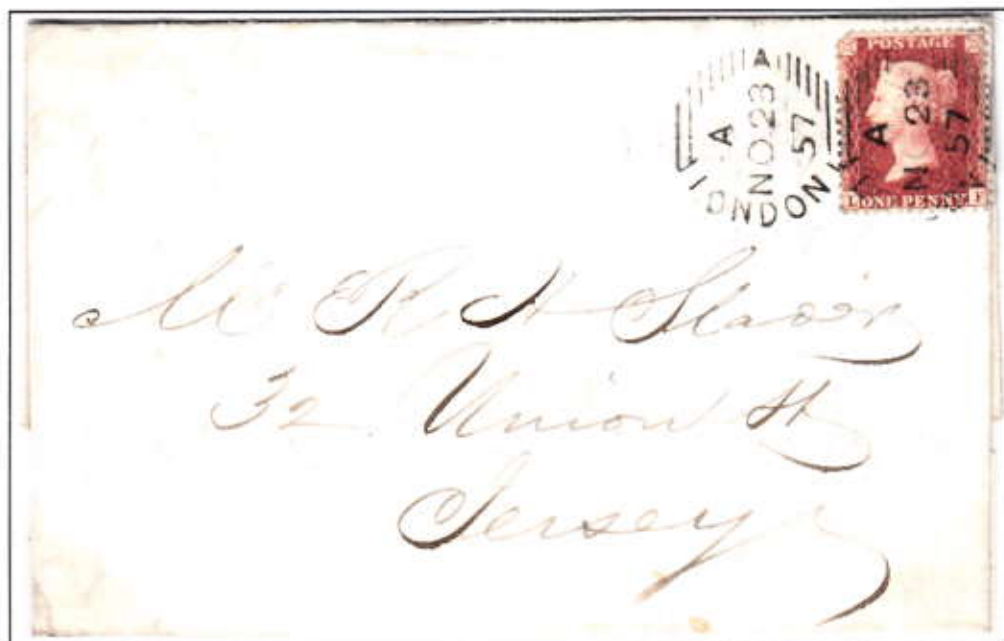 POSTAGE
ONE PENNY
L F
A
A
NO 23
57
LONDON
A
NO 23
57
Mr R H Slader
32 Union St
Jersey